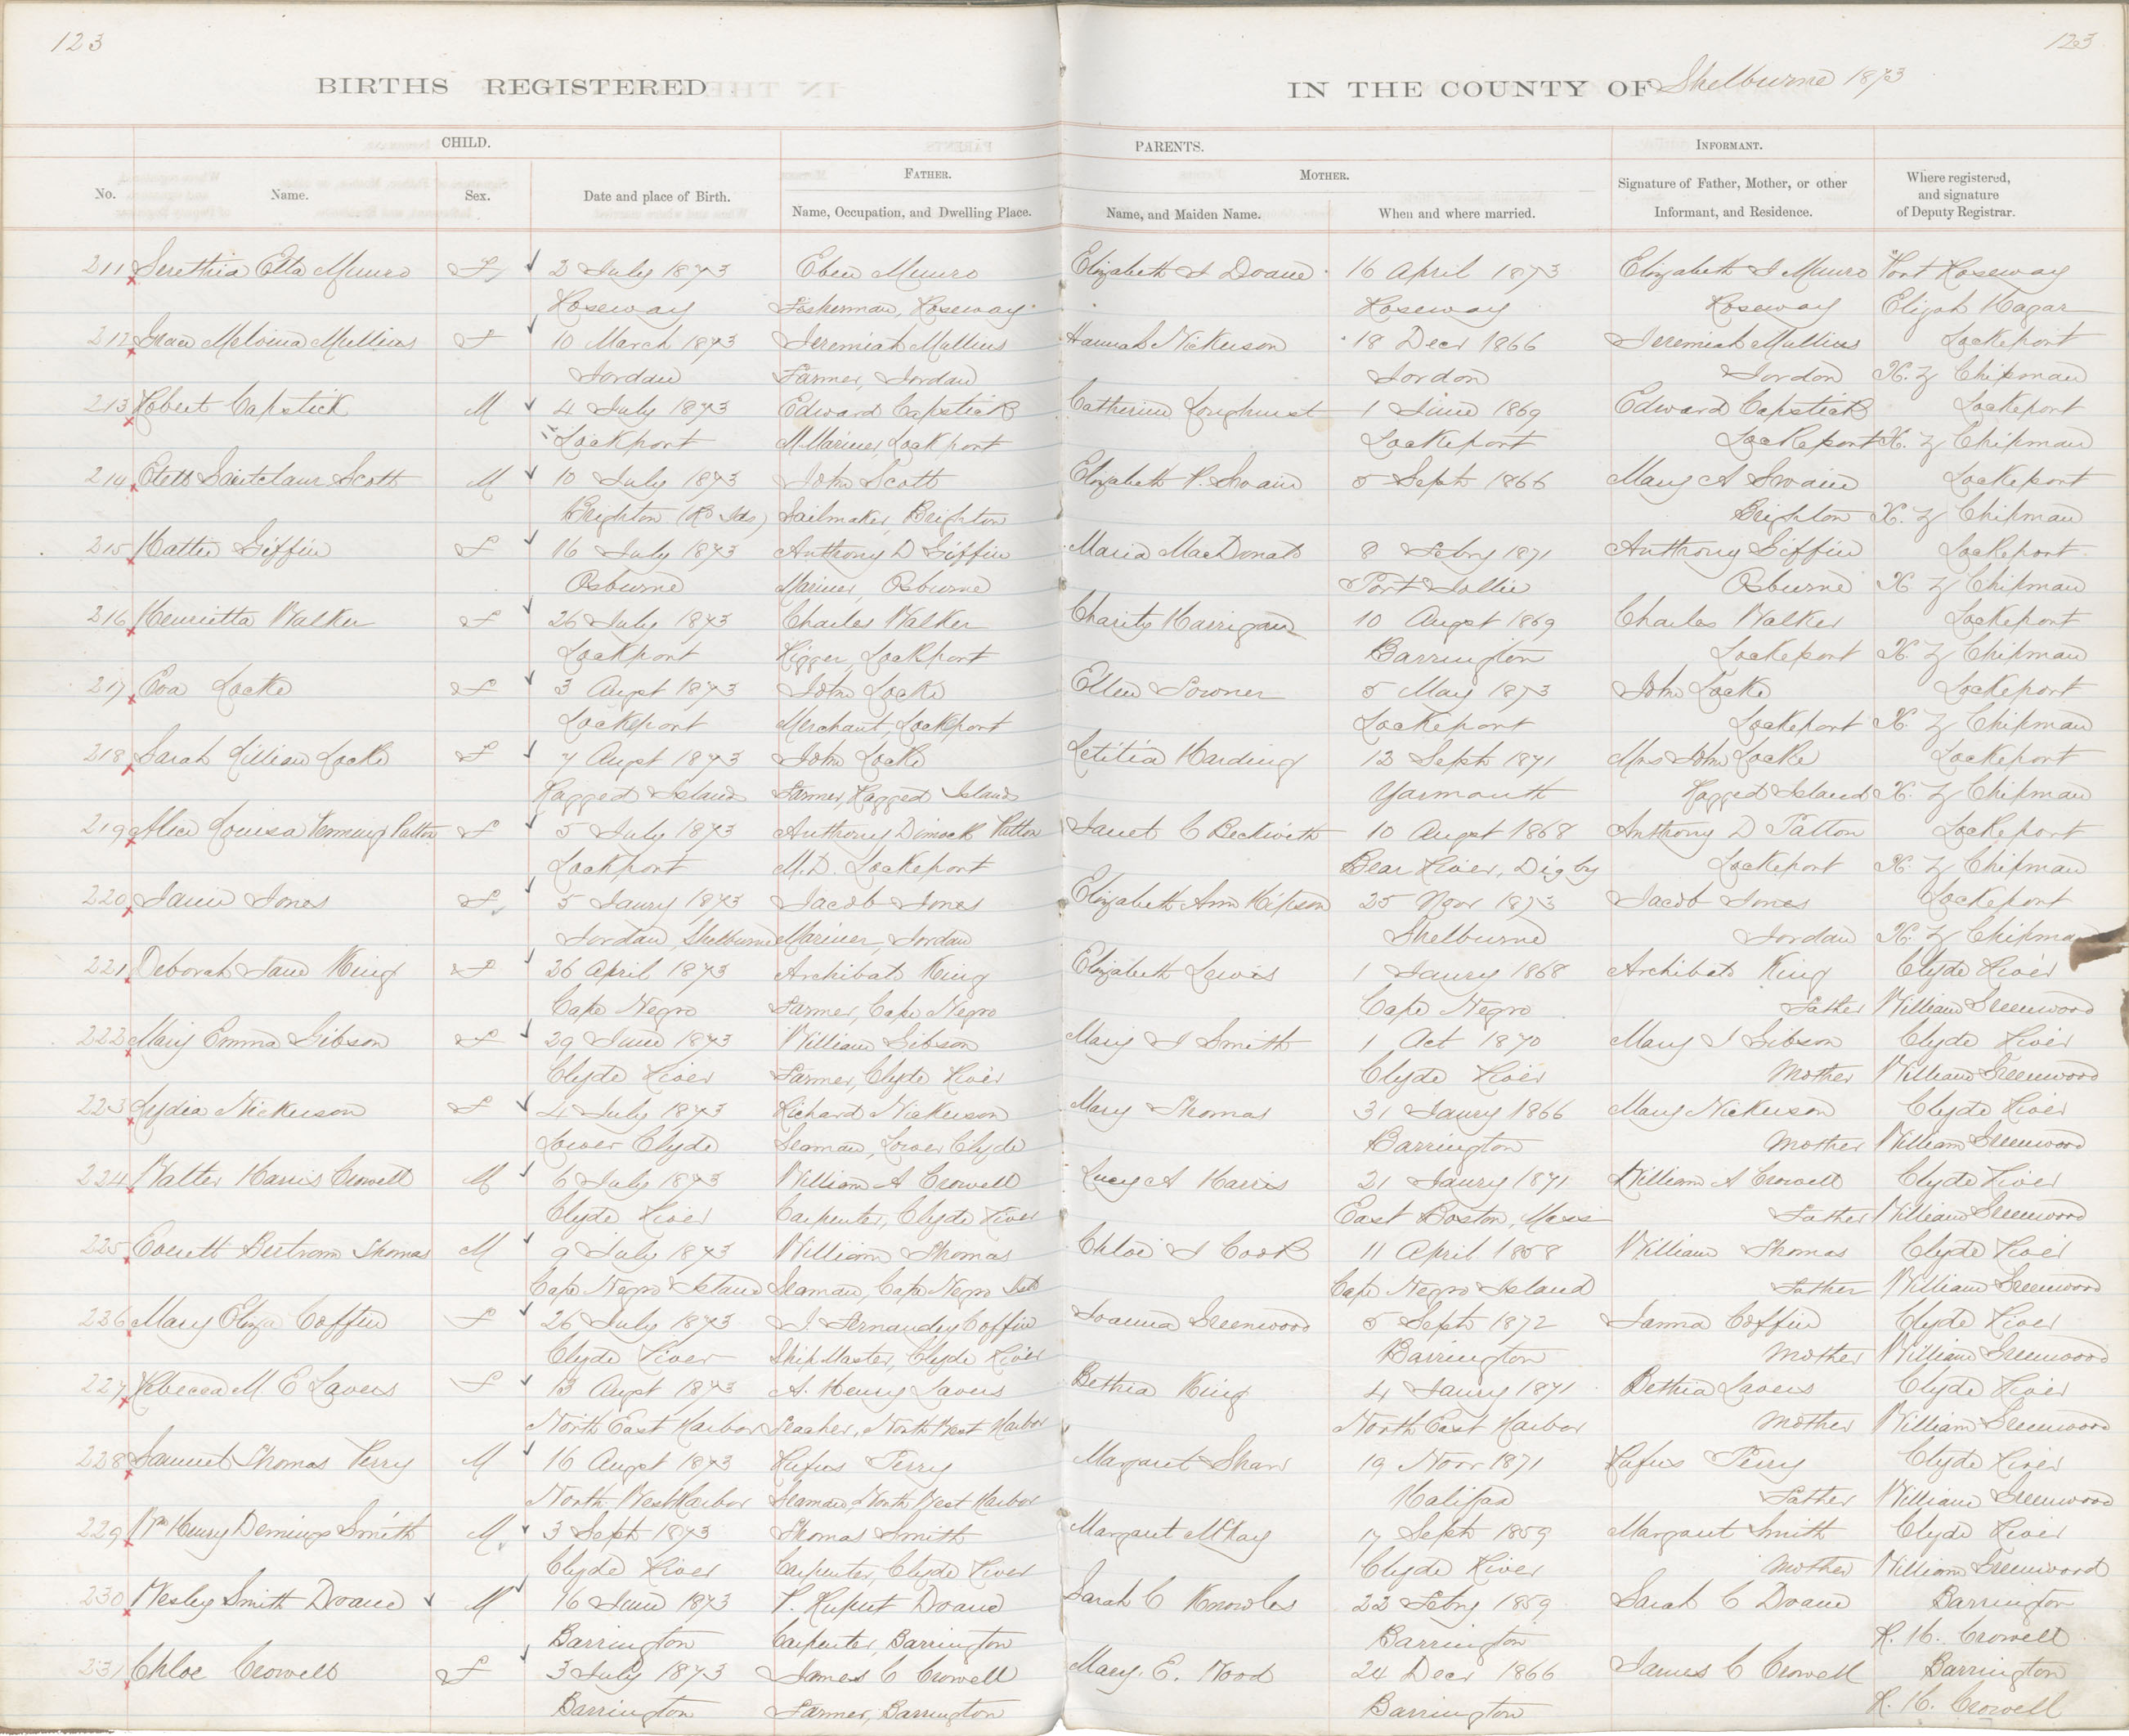 123 123
BIRTHS REGISTERED IN THE COUNTY OF Shelburne 1873
CHILD. PARENTS. INFORMANT.
No. Name. Sex. Date and place of Birth. FATHER. Name, Occupation, and Dwelling Place. MOTHER. Name, and Maiden Name. When and where married. Signature of Father, Mother, or other Informant, and Residence. Where registered, and signature of Deputy Registrar.
211 Etta Munro F 2 July 1873 Eben Munro Elizabeth I Doane 16 April 1873 Elizabeth I Munro Port Roseway
Roseway Fisherman, Roseway Roseway Roseway Elijah Hagar
212 Melvina Mullins F 10 March 1873 Jeremiah Mullins Hannah Nickerson 18 Decr 1866 Jeremiah Mullins Lockeport
Jordan Farmer, Jordan Jordon Jordon H. Z Chipman
213 Robert Capstick M 4 July 1873 Edward Capstick Catherine Longhurst 1 June 1869 Edward Capstick Lockeport
Lockport M. Mariner, Lockport Lockeport Lockeport H. Z Chipman
214 Scott M 10 July 1873 John Scott Elizabeth P. Swain 5 Sept 1866 Mary A Swain Lockeport
Brighton (R Ids) Sailmaker, Brighton Brighton H. Z Chipman
215 Hattie Giffin F 16 July 1873 Anthony D Giffin Maria MacDonald 8 Febry 1871 Anthony Giffin Lockeport
Osburne Mariner, Osburne Port Jollie Osburne H Z Chipman
216 Henrietta Walker F 26 July 1873 Charles Walker Charity Harrigan 10 Augst 1869 Charles Walker Lockeport
Lockport Rigger, Lockport Barrington Lockeport H. Z Chipman
217 Eva Locke F 3 Augst 1873 John Locke Ellen 5 May 1873 John Locke Lockeport
Lockeport Merchant, Lockeport Lockeport Lockeport H. Z Chipman
218 Sarah Lillian Locke F 7 Augst 1873 John Locke Letitia Harding 12 Sept 1871 Mrs John Locke Lockeport
Ragged Island Farmer, Ragged Island Yarmouth Ragged Island H. Z Chipman
219 Alice Louisa Patton F 5 July 1873 Anthony Dimock Patton Janet C Beckwith 10 Augst 1868 Anthony D Patton Lockeport
Lockport M.D. Lockeport Bear River, Digby Lockeport H. Z Chipman
220 Janie Jones F 5 Janry 1873 Jacob Jones Elizabeth Ann Hipson 25 Novr 1873 Jacob Jones Lockeport
Jordan, Shelburne Mariner, Jordan Shelburne Jordan H. Z Chipman
221 Deborah Jane King F 26 April 1873 Archibald King Elizabeth Lewis 1 Janry 1868 Archibald King Clyde River
Cape Negro Farmer, Cape Negro Cape Negro Father William Greenwood
222 Mary Emma Gibson F 29 June 1873 William Gibson Mary I Smith 1 Oct 1870 Mary I Gibson Clyde River
Clyde River Farmer, Clyde River Clyde River Mother William Greenwood
223 Lydia Nickerson F 4 July 1873 Richard Nickerson Mary Thomas 31 Janry 1866 Mary Nickerson Clyde River
Lower Clyde Seaman, Lower Clyde Barrington Mother William Greenwood
224 Walter Harris Crowell M 6 July 1873 William A Crowell Lucy A Harris 21 Janry 1871 William A Crowell Clyde River
Clyde River Carpenter, Clyde River East Boston, Mass Father William Greenwood
225 Everett Bertram Thomas M 9 July 1873 William Thomas Chloe I Cook 11 April 1858 William Thomas Clyde River
Cape Negro Island Seaman, Cape Negro Isld Cape Negro Island Father William Greenwood
236 Mary Eliza Coffin F 26 July 1873 J. Fernandez Coffin Joanna Greenwood 5 Sept 1872 Janna Coffin Clyde River
Clyde River Ship Master, Clyde River Barrington Mother William Greenwood
227 Rebecca M E Lavers F 13 Augst 1873 A. Henry Lavers Bethia King 4 Janry 1871 Bethia Lavers Clyde River
North East Harbor Teacher, North West Harbor North East Harbor Mother William Greenwood
228 Samuel Thomas Perry M 16 Augst 1873 Rufus Perry Margaret Shaw 19 Novr 1871 Rufus Perry Clyde River
North West Harbor Seaman, North West Harbor Halifax Father William Greenwood
229 Wm Henry Demings Smith M 3 Sept 1873 Thomas Smith Margaret McKay 17 Sept 1859 Margaret Smith Clyde River
Clyde River Carpenter, Clyde River Clyde River Mother William Greenwood
230 Wesley Smith Doane M 16 June 1873 P. Rupert Doane Sarah C Knowles 22 Febry 1859 Sarah C Doane Barrington
Barrington Carpenter, Barrington Barrington R. H. Crowell
231 Chloe Crowell F 3 July 1873 James C Crowell Mary. E. Wood 24 Decr 1866 James C Crowell Barrington
Barrington Farmer, Barrington Barrington R. H. Crowell